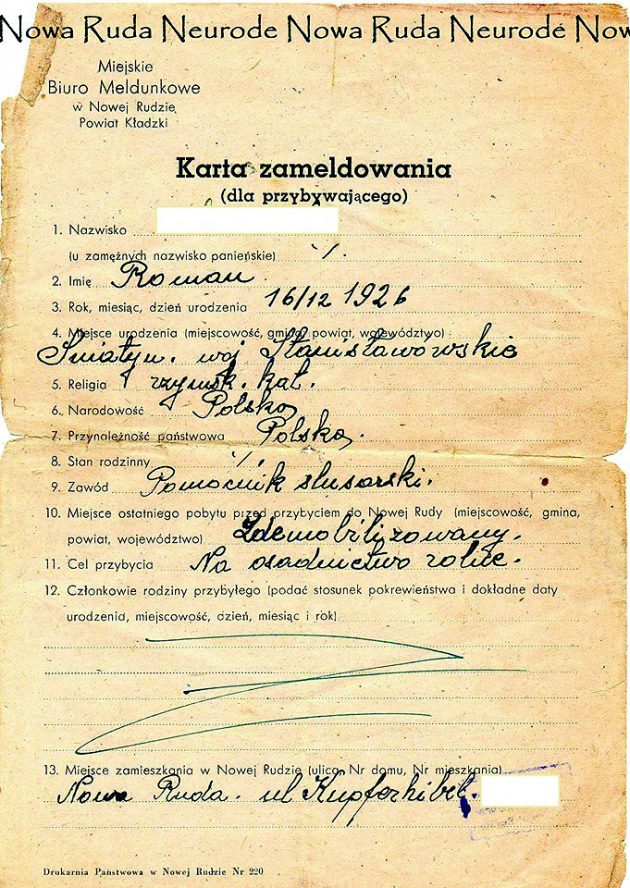 Nowa Ruda Neurode Nowa Ruda Neurode Now
Miejskie
Biuro Meldunkowe
w Nowej Rudzie
Powiat Kładzki
Karta zameldowania
(dla przybywającego)
1. Nazwisko
(u zamężnych nazwisko panieńskie) ·/.
2. Imię Roman
3. Rok, miesiąc, dzień urodzenia 16/12 1926
4. Miejsce urodzenia (miejscowość, gmina, powiat, województwo)
Śniatyn. woj Stanisławówskie
5. Religia rzymsk. kat.
6. Narodowość Polska
7. Przynależność państwowa Polska.
8. Stan rodzinny ·/.
9. Zawód Pomocnik ślusarski.
10. Miejsce ostatniego pobytu przed przybyciem do Nowej Rudy (miejscowość, gmina,
powiat, województwo) Zdemobilizowany.
11. Cel przybycia Na osadnictwo rolne.
12. Członkowie rodziny przybyłego (podać stosunek pokrewieństwa i dokładne daty
urodzenia, miejscowość, dzień, miesiąc i rok)
13. Miejsce zamieszkania w Nowej Rudzie (ulica, Nr domu, Nr mieszkania)
Nowa Ruda. ul
Drukarnia Państwowa w Nowej Rudzie Nr 220